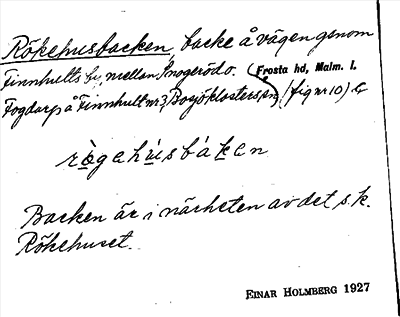 Rökehusbacken, backe å vägen genom
Finnhults by, mellan Snogerödo.
Frosta hd, Malm. l.
Fogdarp å Finnhult nr 3, Bosjöklosters sn, (fig nr 10) G
rògehúsbáken
Backen är i närheten av det s.k.
Rökehuset.
EINAR HOLMBERG 1927